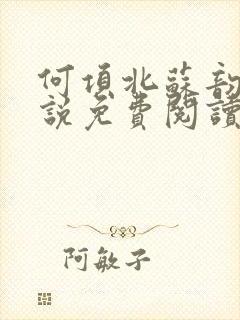 何項北蘇韵
說免費閱讀
阿敏子